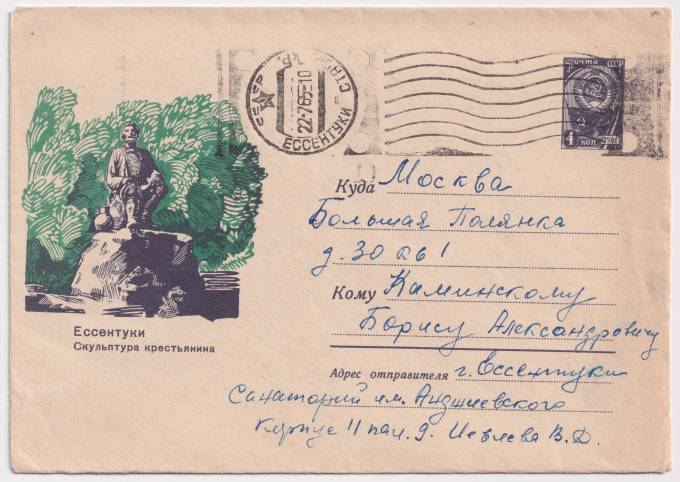 СССР
СТАВРОП. КР.
22-7 65-10
ЕССЕНТУКИ
ПОЧТА СССР
4 КОП. 1961
Куда Москва
Большая Полянка
д. 30 кв 1
Кому Каминскому
Борису Александровичу
Адрес отправителя г. Ессентуки
Санаторий им. Анджиевского
Корпус 11 пал. 9. Иевлева В. Д.
Ессентуки
Скульптура крестьянина